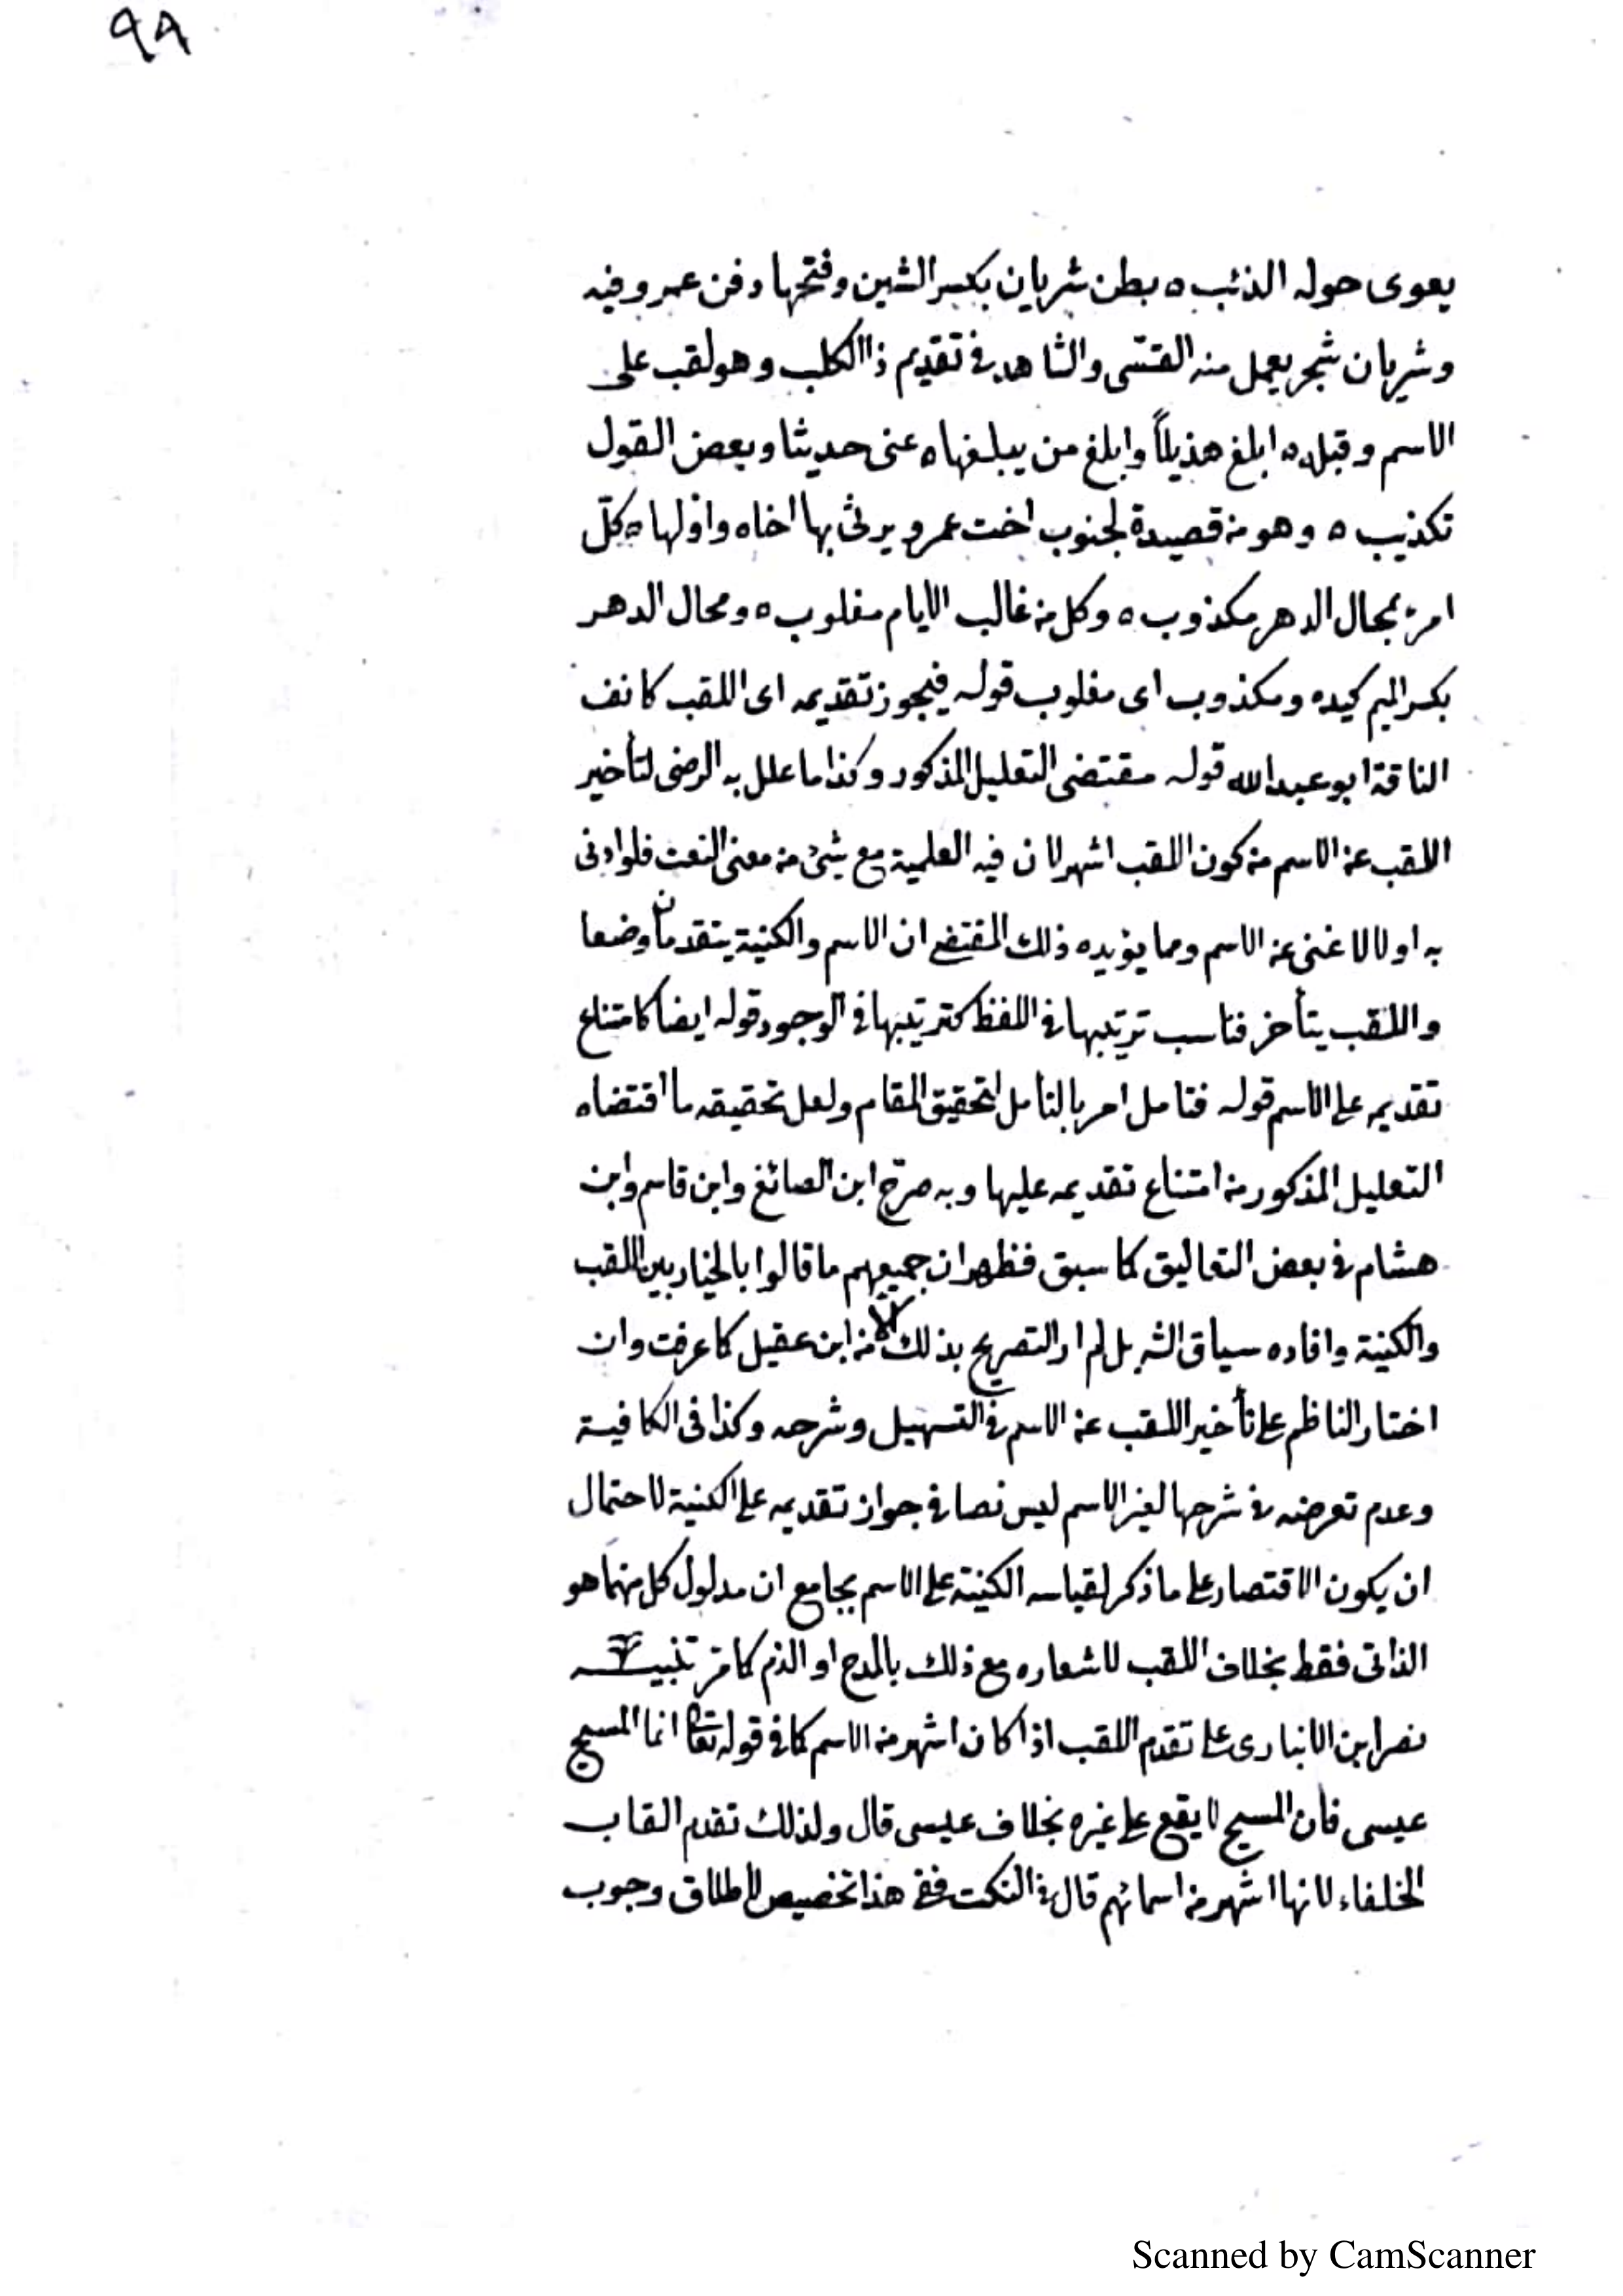 ٩٨
يعوى حوله الذئب ه بطن شريان بكسر الشين وفتحها دفن عمرو فيه
وشريان شجر يعمل منه القسّى والشاهد في تقديم ذا الكلب وهو لقب على
الاسم وقبله ه ابلغ هذيلاً وابلغ من يبلغها ه عنى حديثا وبعض القول
تكذيب ه وهو من قصيدة لجنوب اخت عمرو يرثى بها اخاه واولها ه كلّ
امرئ بمحال الدهر مكذوب ه وكل من غالب الايام مغلوب ه ومحال الدهر
بكسر الميم كيده ومكذوب اى مغلوب قوله فيجوز تقديمه اى اللقب كانف
الناقة ابو عبد الله قوله مقتضى التعليل المذكور وكذا ما علل به الرضى لتأخير
اللقب عن الاسم من كون اللقب اشهر لان فيه العلمية مع شئ من معنى النعت فلو اتى
به اولا لاغنى عن الاسم ومما يؤيده ذلك المقتضى ان الاسم والكنية يتقدمان وضعا
واللقب يتأخر فناسب ترتيبها في اللفظ كترتيبها في الوجود قوله ايضا كامتناع
تقديمه على الاسم قوله فتامل امر بالتأمل لتحقيق المقام ولعل تحقيقه ما اقتضاه
التعليل المذكور من امتناع تقديمه عليها وبه صرّح ابن الصائغ وابن قاسم وابن
هشام في بعض التعاليق كما سبق فظهر ان جميعهم ما قالوا بالخيار بين اللقب
والكنية وافاده سياق الشر بل لم ار التصريح بذلك الا من ابن عقيل كما عرفت وان
اختار الناظم على تأخير اللقب عن الاسم في التسهيل وشرحه وكذا في الكافية
وعدم تعرضه في شرحها لغير الاسم ليس نصا في جواز تقديمه على الكنية لاحتمال
ان يكون الاقتصار على ما ذكر لقياسه الكنية على الاسم بجامع ان مدلول كل منهما هو
الذاتى فقط بخلاف اللقب لاشعاره مع ذلك بالمدح او الذم كما مرّ تنبيه
نص ابن الانبارى على تقدم اللقب اذا كان اشهر من الاسم كما في قوله تعالى انما المسيح
عيسى فان المسيح لا يقع على غيره بخلاف عيسى قال ولذلك تقدم القاب
الخلفاء لانها اشهر من اسمائهم قال في النكت ففي هذا تخصيص لاطلاق وجوب
Scanned by CamScanner